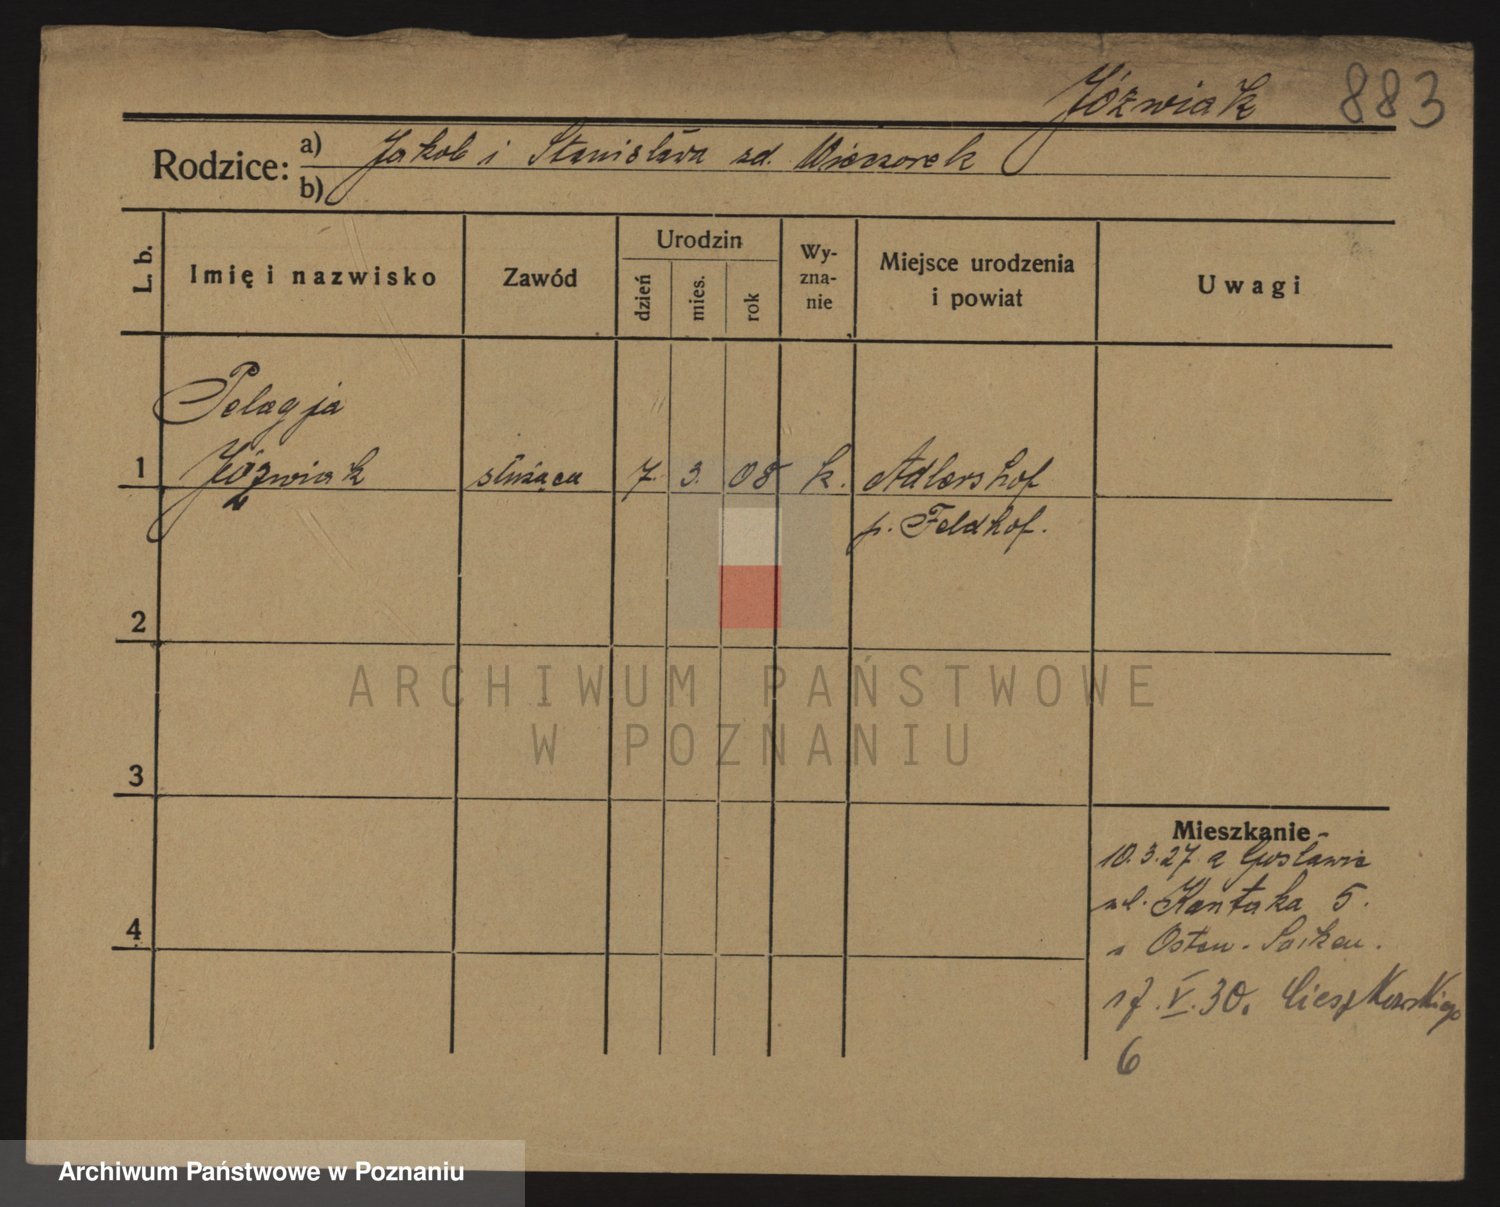 Jóźwiak 883
Rodzice: a) Jakob i Stanisława zd. Wieczorek
b)
L. b. Imię i nazwisko Zawód Urodzin dzień mies. rok Wy-zna-nie Miejsce urodzenia i powiat Uwagi
Pelagja
1 Jóźwiak służąca 7. 3. 08 k. Adlershof
p. Feldhof.
2
ARCHIWUM PAŃSTWOWE
W POZNANIU
3
Mieszkanie
10.3.27 z Gosławic
ul. Kantaka 5.
4
17.V.30. Cieszkowskiego
6
Archiwum Państwowe w Poznaniu